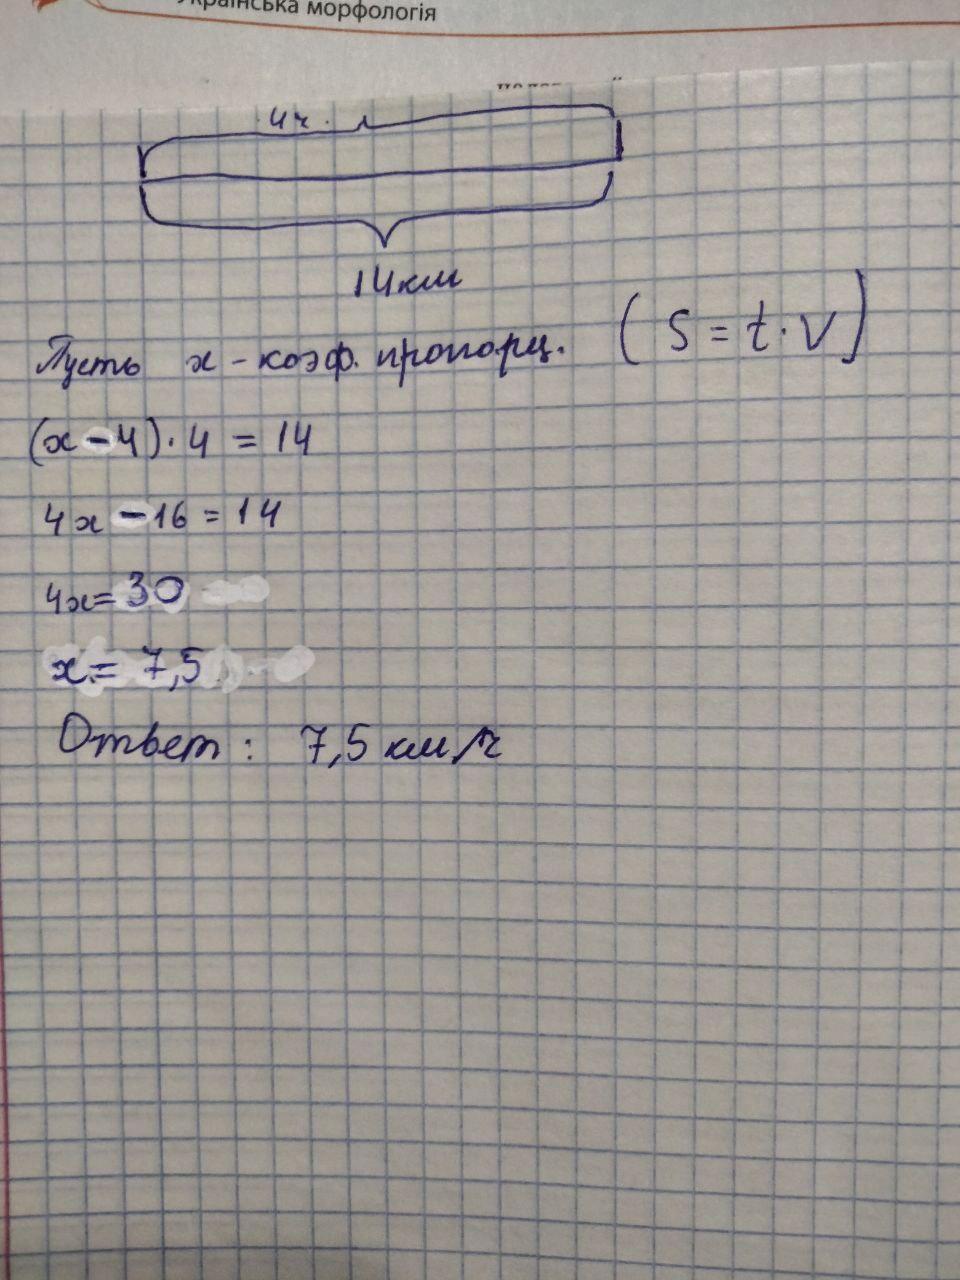 Українська морфологія
4ч.
14км
Пусть x - коэф. пропорц. (S = t · V)
(x - 4) · 4 = 14
4x - 16 = 14
4x = 30
x = 7,5
Ответ: 7,5 км/ч